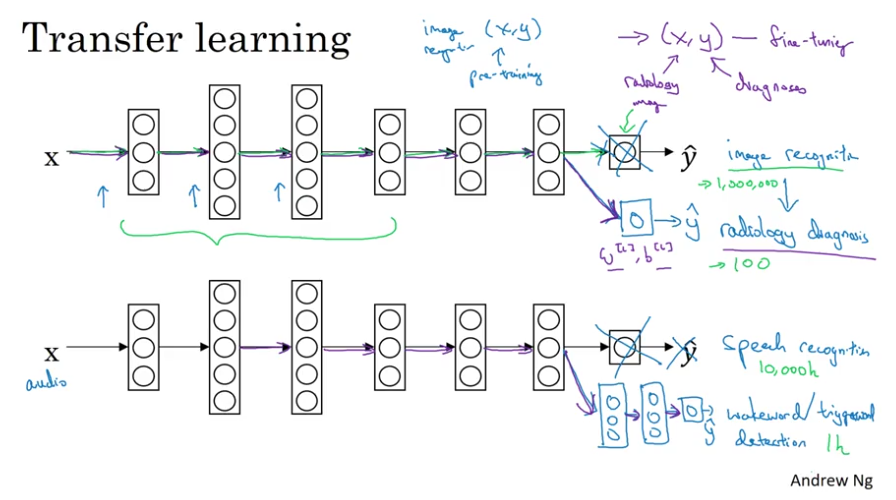 Transfer learning
image (x, y)
recognition
pre-training
→ (x, y) — fine-tuning
radiology
image
diagnoses
x
ŷ
image recognition
→ 1,000,000
ŷ
radiology diagnosis
W[L], b[L]
→ 100
x
audio
ŷ
Speech recognition
10,000h
wakeword/triggerword
detection 1h
ŷ
Andrew Ng